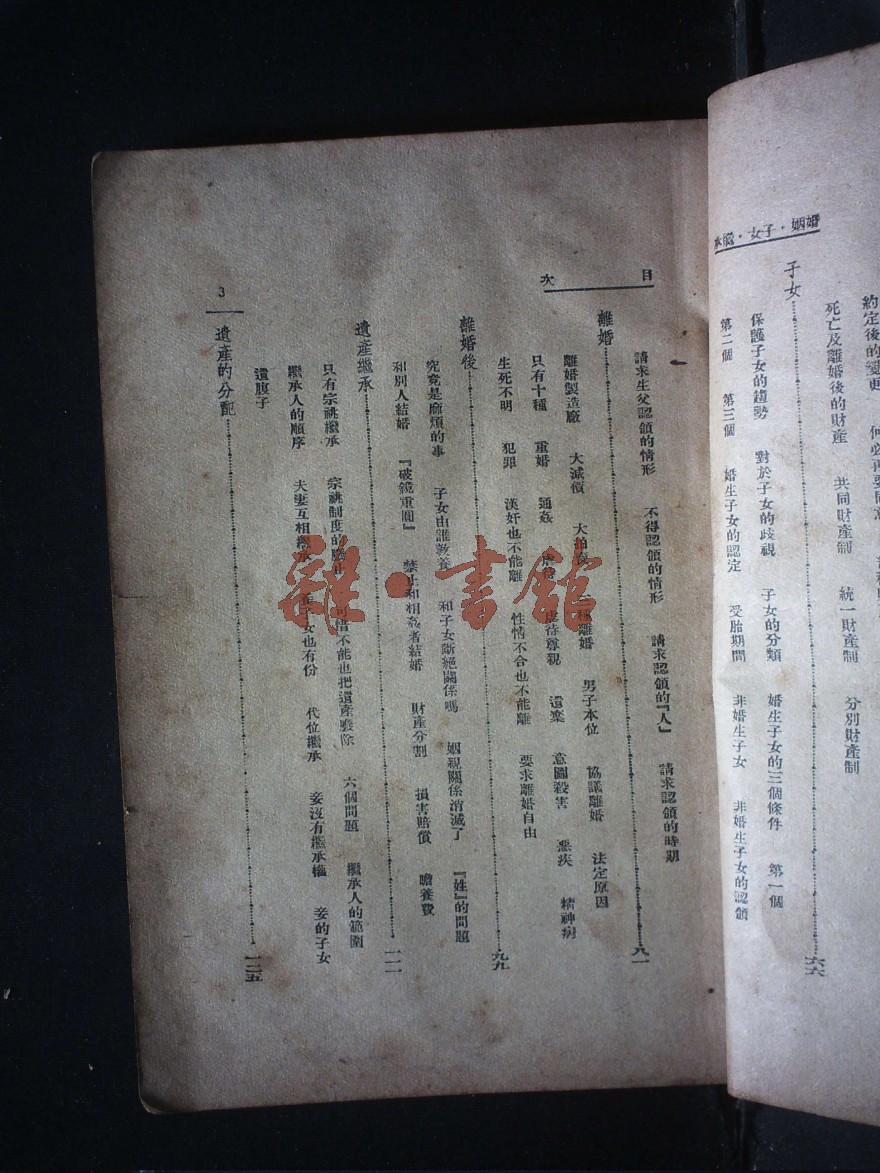 婚姻・子女・繼承
約定後的變更　何必再要同意
死亡及離婚後的財產　共同財產制　統一財產制　分別財產制
子女……六六
保護子女的趨勢　對於子女的歧視　子女的分類　婚生子女的三個條件　第一個
第二個　第三個　婚生子女的認定　受胎期間　非婚生子女　非婚生子女的認領
目次
請求生父認領的情形　不得認領的情形　請求認領的『人』　請求認領的時期
離婚……八一
離婚製造廠　大減價　大拍賣　離婚　男子本位　協議離婚　法定原因
只有十種　重婚　通姦　虐待　虐待尊親　遺棄　意圖殺害　惡疾　精神病
生死不明　犯罪　漢奸也不能離　性情不合也不能離　要求離婚自由
離婚後……九九
究竟是麻煩的事　子女由誰教養　和子女斷絕關係嗎　姻親關係消滅了　『姓』的問題
和別人結婚　『破鏡重圓』　禁止和相姦者結婚　財產分割　損害賠償　贍養費
遺產繼承……一一一
只有宗祧繼承　宗祧制度的廢止　可惜不能也把遺產廢除　六個問題　繼承人的範圍
繼承人的順序　夫妻互相繼承　養子女也有份　代位繼承　妾沒有繼承權　妾的子女
遺腹子
遺產的分配……一二五
3
雜・書館